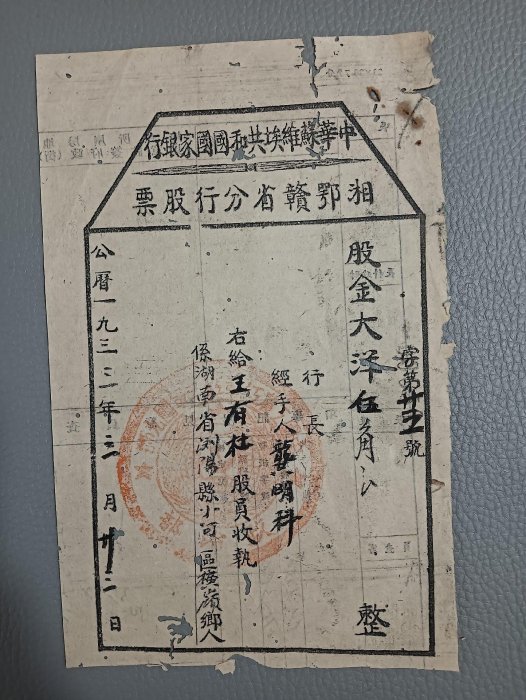 中華蘇維埃共和國國家銀行
湘鄂贛省分行股票
字第廿五號
股金大洋伍 整
行長
經手人龔明科
右給王有杜股員收執
係湖南省浏陽縣小河區橫嶺鄉人
公曆一九三二年三月廿二日